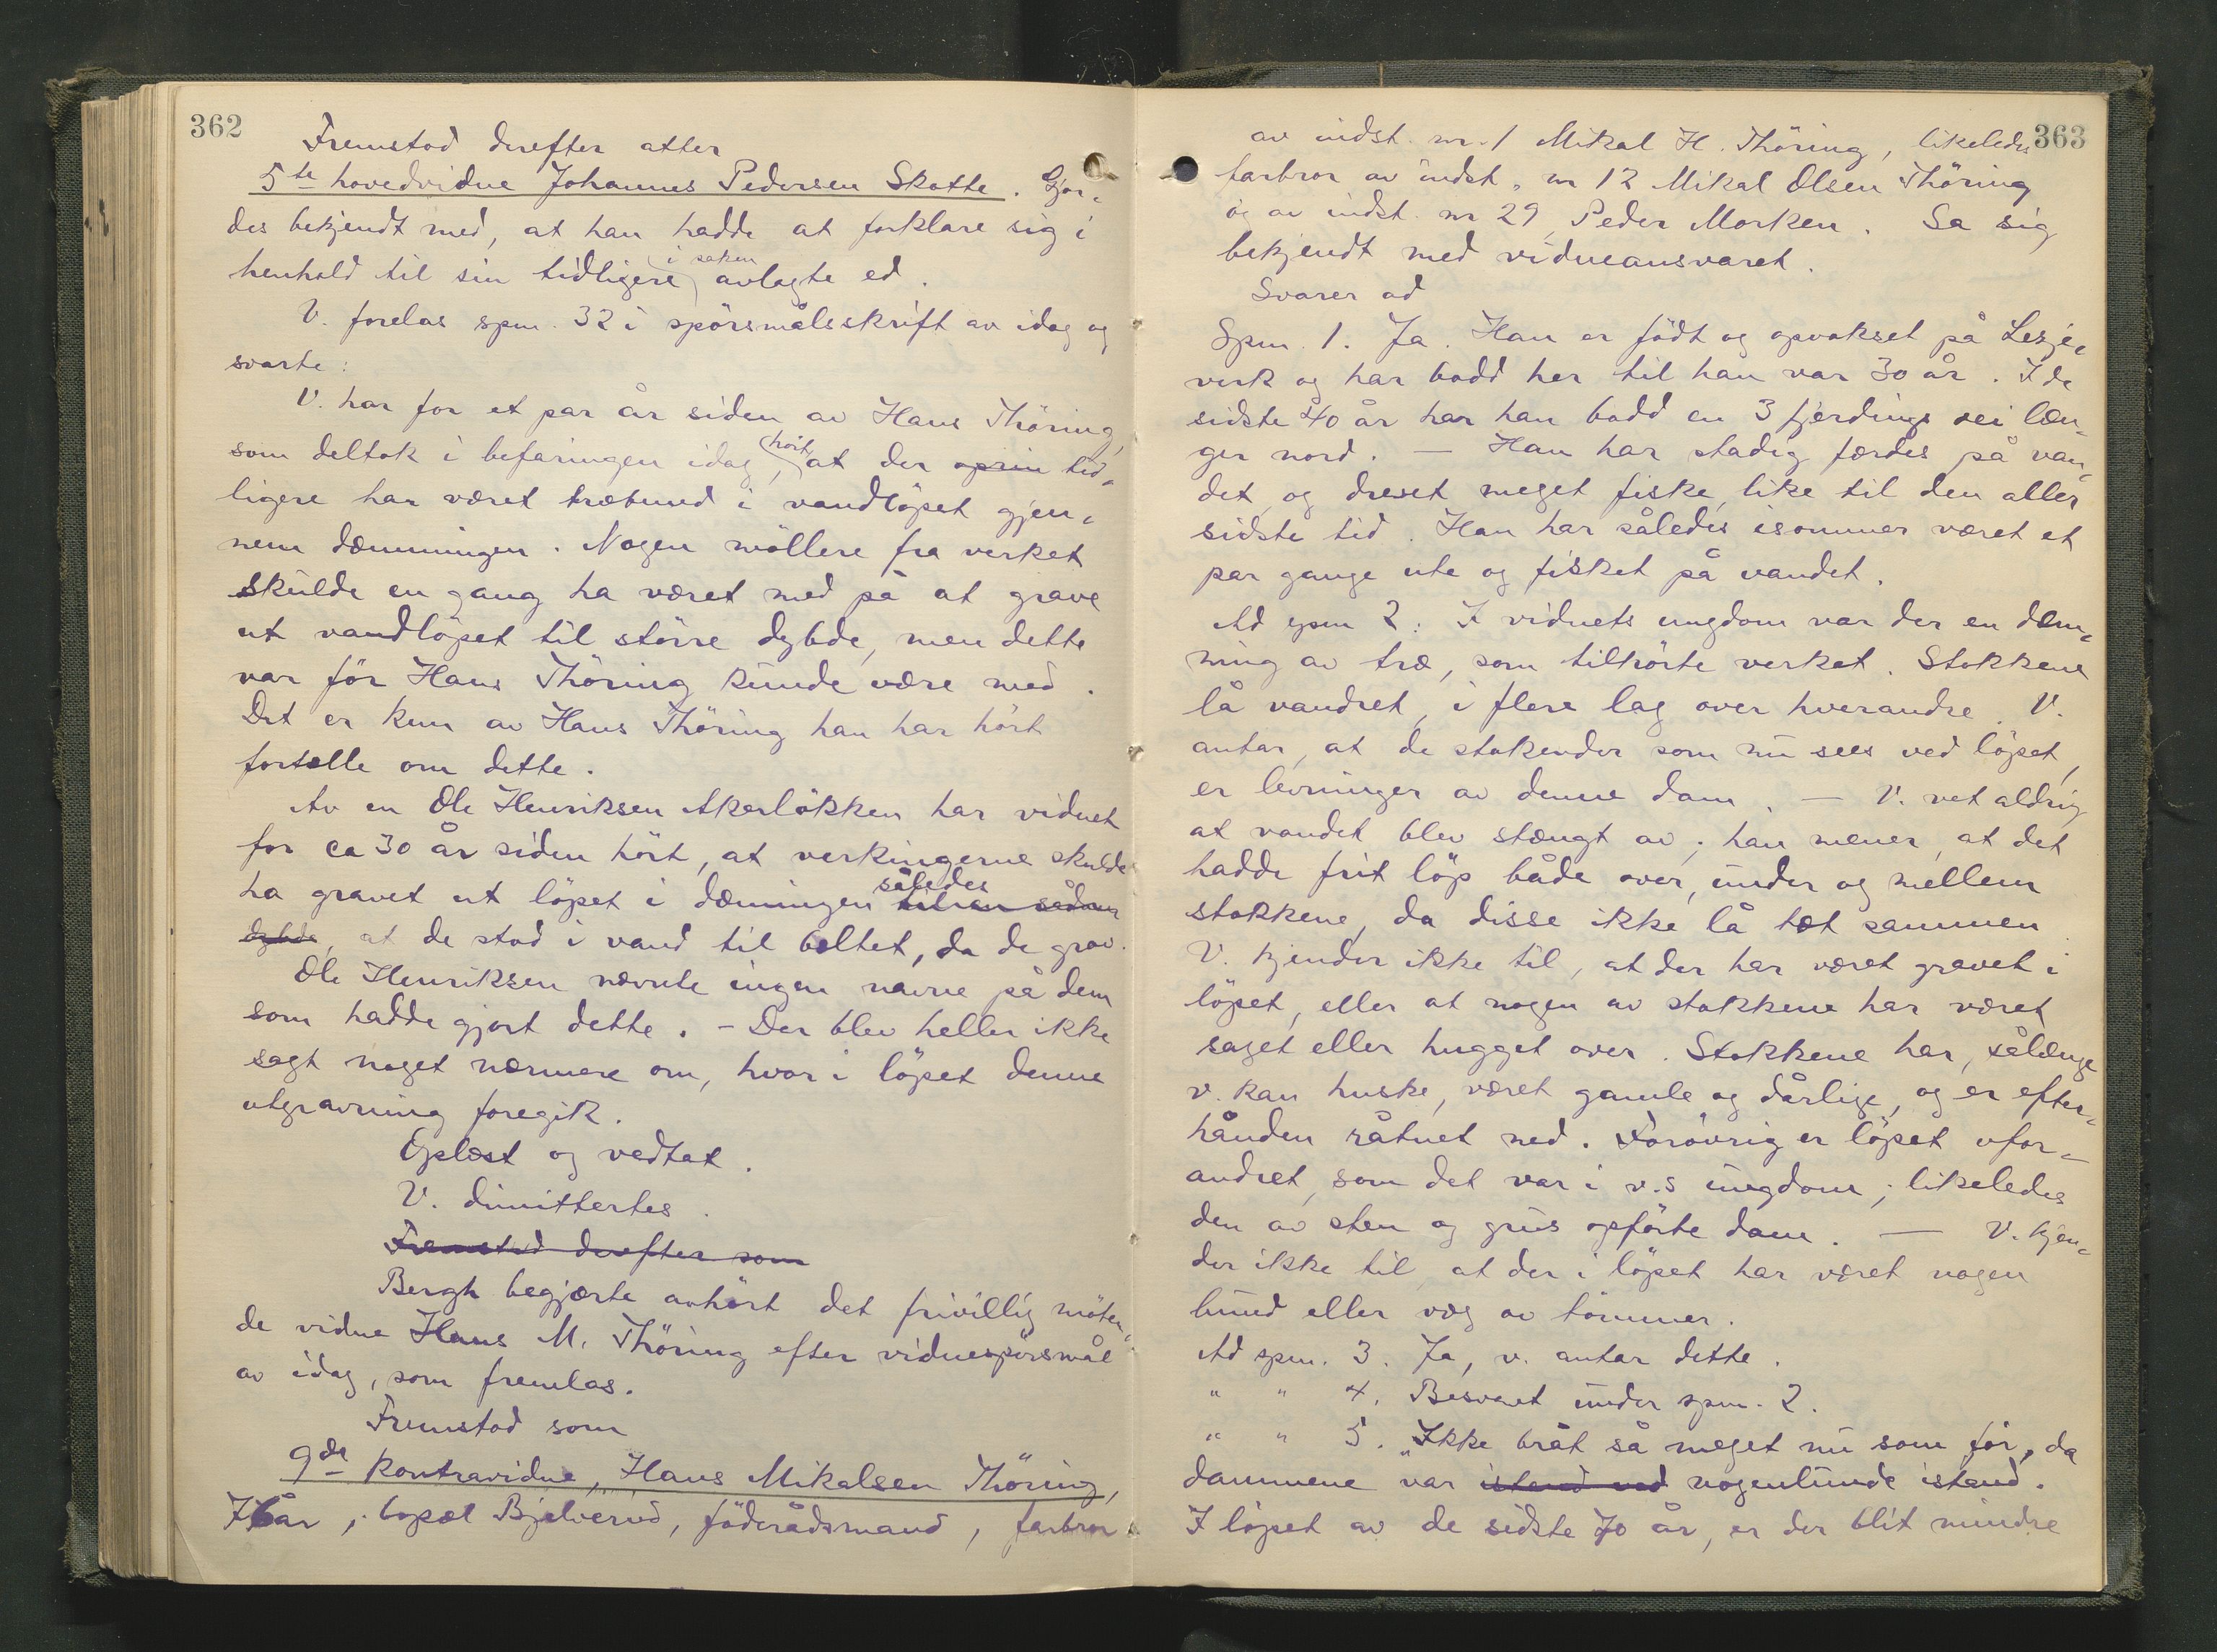 362
Fremstod derefter atter
5te hovedvidne Johannes Pedersen Skotte. Gjor-
des bekjendt med, at han hadde at forklare sig i
henhold til sin tidligere i saken avlagte ed.
V. forelas spm. 32 i spörsmålsskrift av idag og
svarte:
V. har for et par år siden av Hans Thöring,
som deltok i befaringen idag, hört, at der oprin tid-
ligere har været træbund i vandlöpet gjen-
nem dæmningen. Nogen möllere fra verket
skulde en gang ha været med på at grave
ut vandlöpet til större dybde, men dette
var för Hans Thöring kunde være med.
Det er kun av Hans Thöring han har hört
fortælle om dette.
Av en Ole Henriksen Akerløkken har vidnet
for ca 30 år siden hört, at verkingerne skulde
ha gravet ut löpet i dæmningen således til en sådan
dybde, at de stod i vand til beltet, da de grov.
Ole Henriksen nævnte ingen navne på dem
som hadde gjort dette. - Der blev heller ikke
sagt noget nærmere om, hvor i löpet denne
utgravning foregik.
Oplæst og vedtat.
V. dimittertes.
Fremstod derefter som
Bergh begjærte avhört det frivillig möten-
de vidne Hans M. Thöring efter vidnespörsmål
av idag, som fremlas.
Fremstod som
9de kontravidne, Hans Mikalsen Thöring,
76 år, bopæl Bjelverud, föderådsmand, farbror
363
av indst. nr. 1 Mikal H. Thöring, likeledes
farbror av indst. nr 12 Mikal Olsen Thöring
og av indst. nr 29 Peder Morken. Sa sig
bekjendt med vidneansvaret.
Svarer ad
Spm. 1. Ja. Han er födt og opvokset på Lesje-
verk og har bodd her til han var 30 år. I de
sidste 40 år har han bodd en 3 fjerdings vei læn-
ger nord. — Han har stadig færdes på van-
det og drevet meget fiske, like til den aller
sidste tid. Han har således isommer været et
par gange ute og fisket på vandet.
Ad spm 2: I vidnets ungdom var der en dæm-
ning av træ, som tilhörte verket. Stokkene
lå vandret, i flere lag over hverandre. V.
antar, at de stokender som nu sees ved löpet,
er levninger av denne dam. — V. vet aldrig
at vandet blev stængt av; han mener, at det
hadde frit löp både over, under og mellem
stokkene, da disse ikke lå tæt sammen.
V. kjender ikke til, at der har været gravet i
löpet, eller at nogen av stokkene har været
saget eller hugget over. Stokkene har, sålænge
v. kan huske, været gamle og dårlige, og er efter-
hånden råtnet ned. Forövrig er löpet ufor-
andret, som det var i v.s ungdom; likeledes
den av sten og grus opförte dam. — V. kjen-
der ikke til at der i löpet har været nogen
bund eller væg av tömmer.
Ad spm. 3. Ja, v. antar dette.
" " 4. Besvaret under spm. 2.
" " 5. "Ikke bråt så meget nu som för, da
dammene var istand ved nogenlunde istand.
I löpet av de sidste 70 år, er der blit mindre